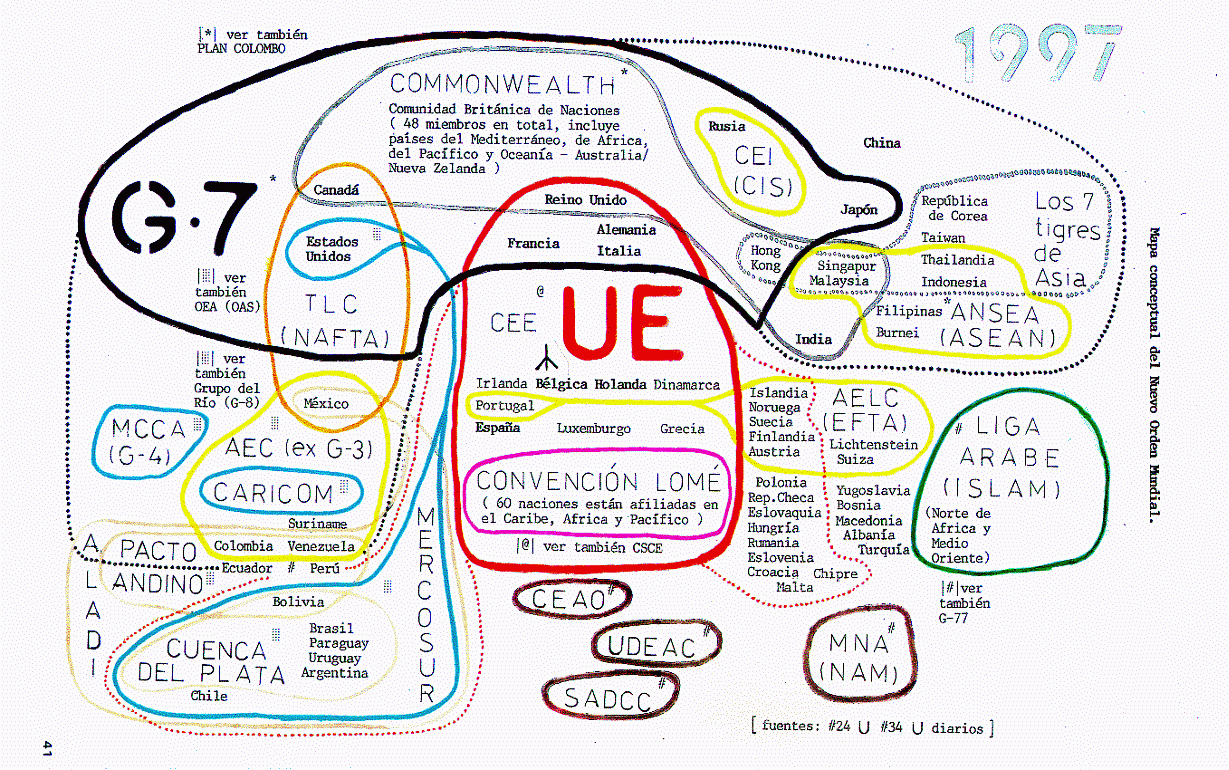 |*| ver también
PLAN COLOMBO
1997
COMMONWEALTH*
Comunidad Británica de Naciones
( 48 miembros en total, incluye
países del Mediterráneo, de Africa,
del Pacífico y Oceanía - Australia/
Nueva Zelanda )
Rusia
CEI
(CIS)
China
G·7*
Canadá
Reino Unido
Japón
República
de Corea
Taiwan
Los 7
tigres
de
Asia
Estados
Unidos
Francia
Alemania
Italia
Hong
Kong
Singapur
Malaysia
Thailandia
Indonesia
|⁞⁞| ver
también
OEA (OAS)
TLC
(NAFTA)
@
CEE
UE
Filipinas*
Burnei
ANSEA
(ASEAN)
India
|⁞⁞| ver
también
Grupo del
Río (G-8)
México
Irlanda Bélgica Holanda Dinamarca
Portugal
España Luxemburgo Grecia
Islandia
Noruega
Suecia
Finlandia
Austria
AELC
(EFTA)
Lichtenstein
Suiza
# LIGA
ARABE
(ISLAM)
(Norte de
Africa y
Medio
Oriente)
MCCA
(G-4)
AEC (ex G-3)
CARICOM
Suriname
CONVENCIÓN LOMÉ
( 60 naciones están afiliadas en
el Caribe, Africa y Pacífico )
|@| ver también CSCE
Polonia
Rep.Checa
Eslovaquia
Hungría
Rumania
Eslovenia
Croacia Chipre
Malta
Yugoslavia
Bosnia
Macedonia
Albanía
Turquía
|#|ver
también
G-77
ALADI
PACTO
ANDINO
Colombia Venezuela
Ecuador # Perú
Bolivia
MERCOSUR
CUENCA
DEL PLATA
Brasil
Paraguay
Uruguay
Argentina
Chile
CEAO#
UDEAC#
SADCC#
MNA#
(NAM)
[ fuentes: #24 U #34 U diarios ]
Mapa conceptual del Nuevo Orden Mundial.
41